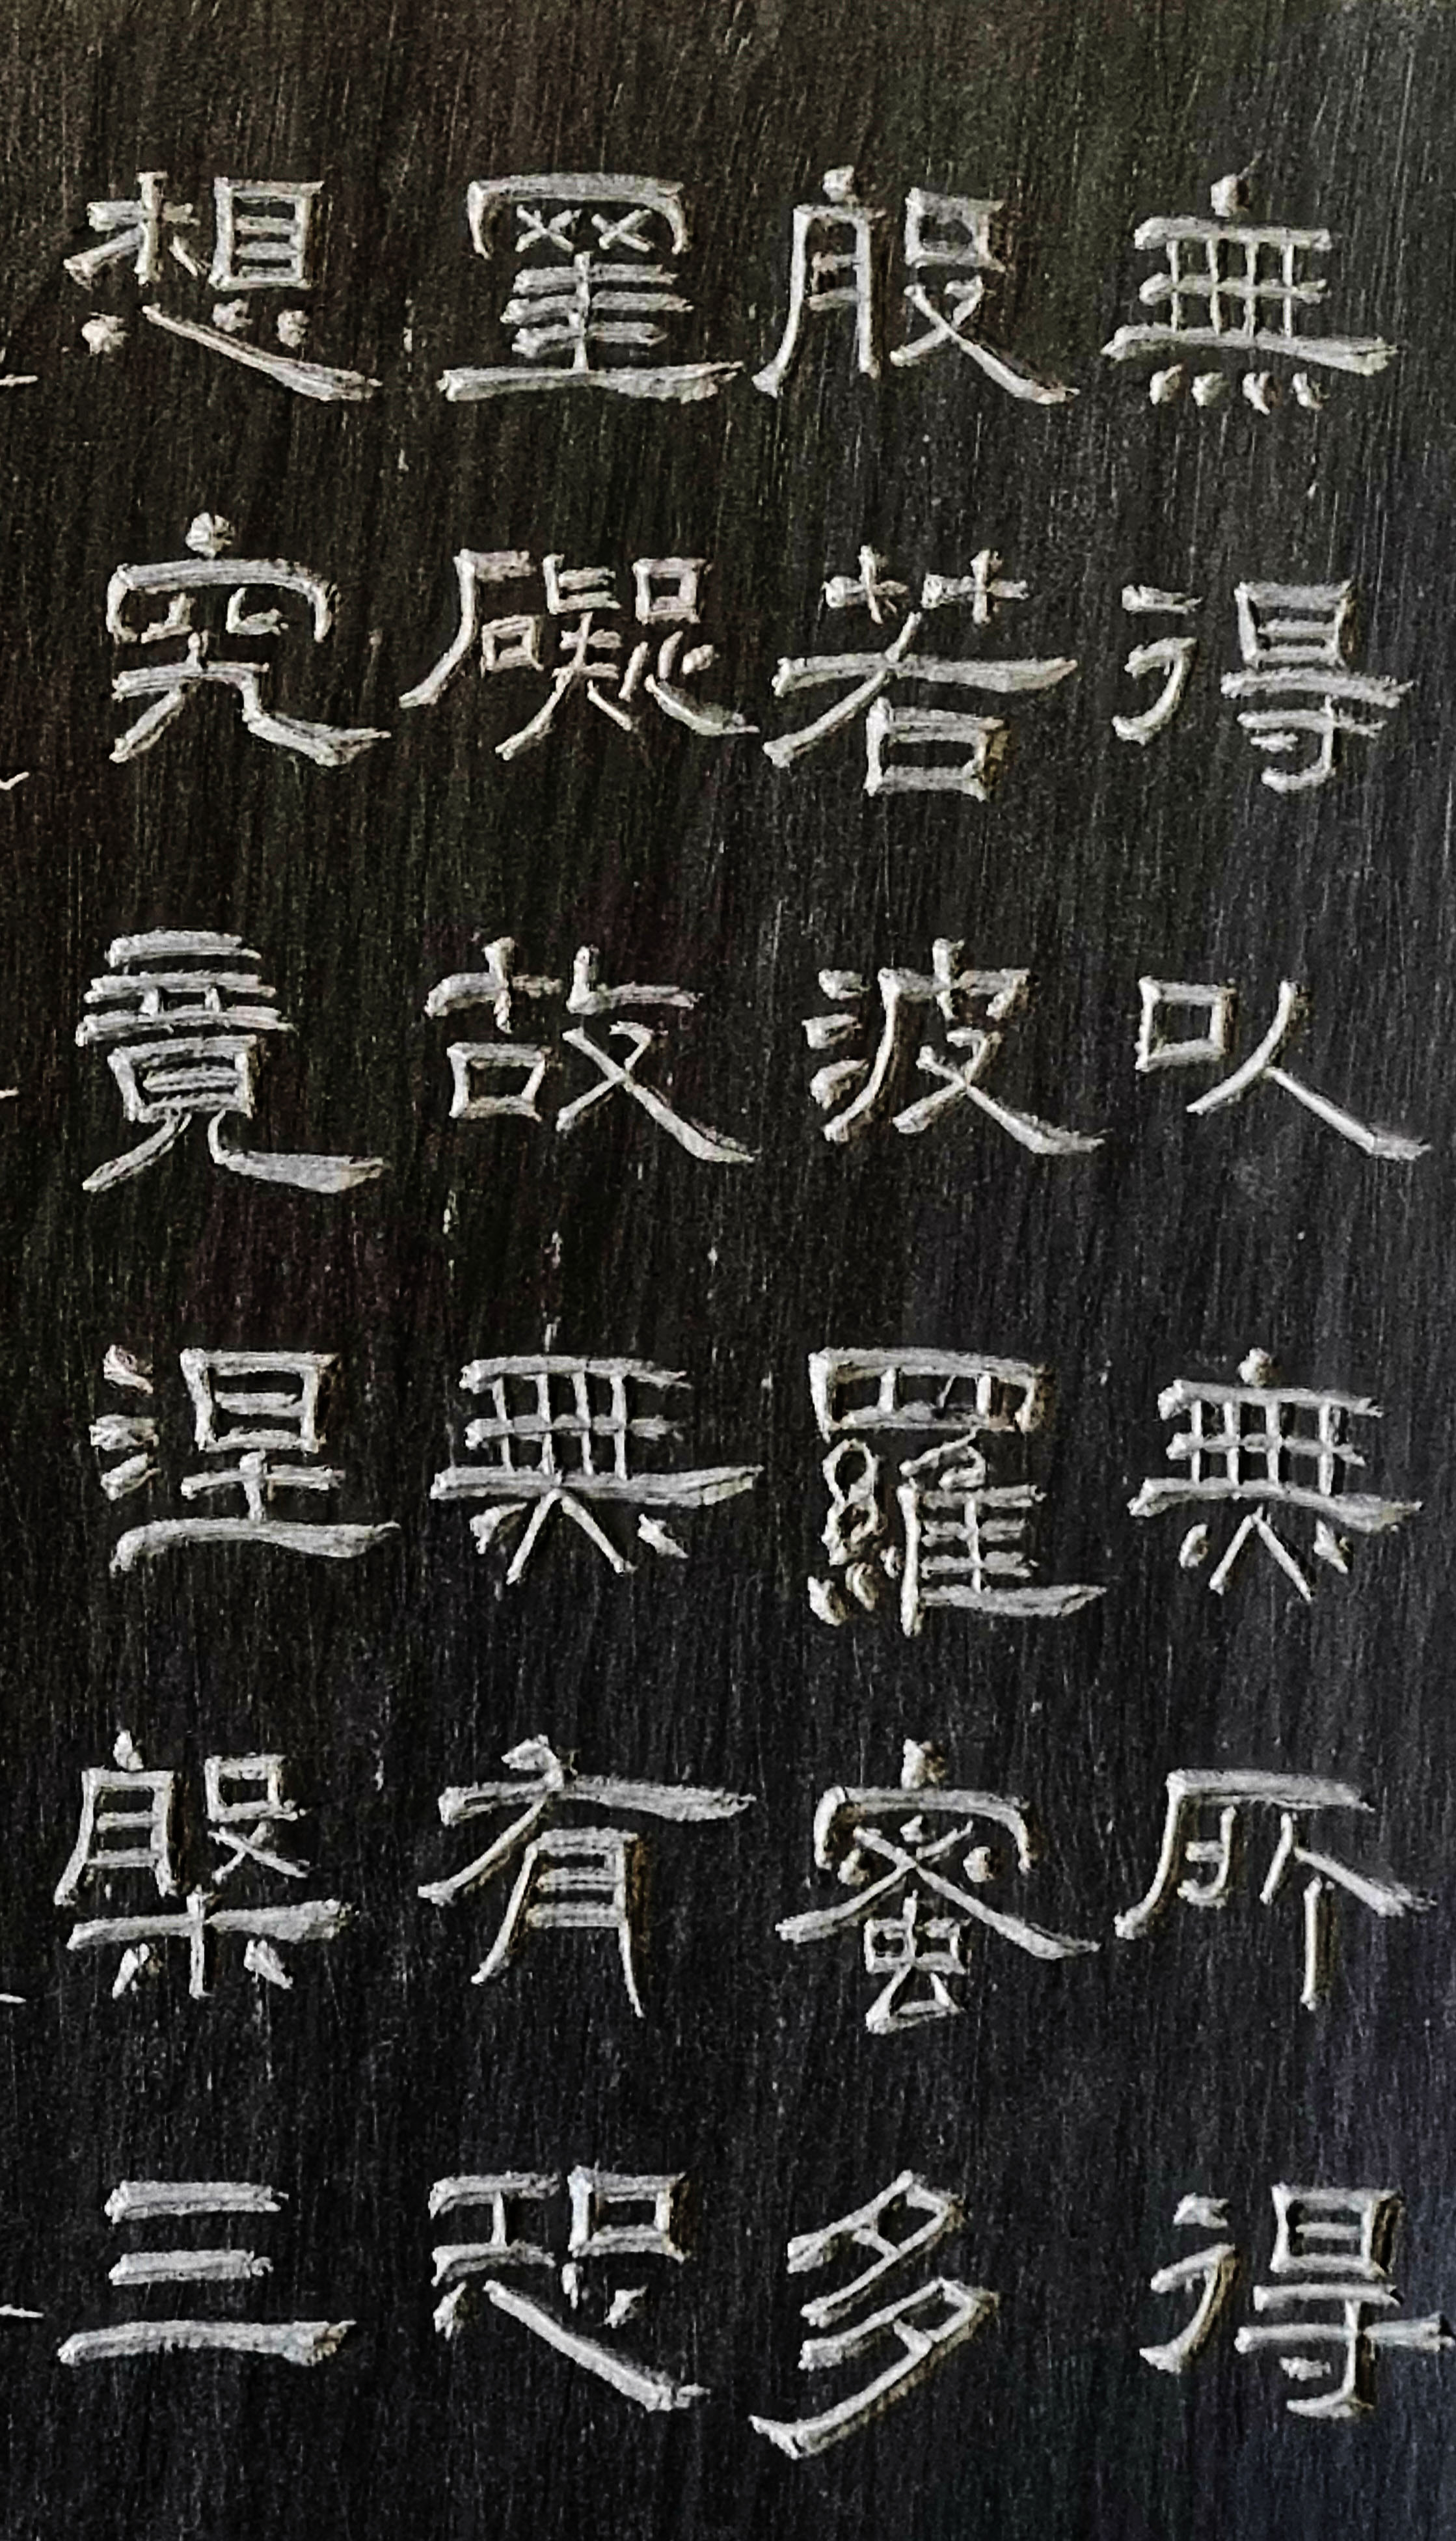 無得以無所得
般若波羅蜜多
罣礙故無有恐
想究竟涅槃三